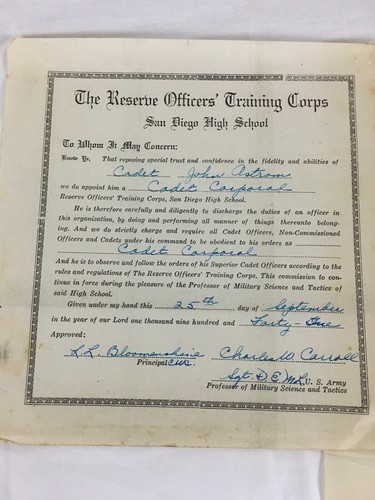 The Reserve Officers' Training Corps
San Diego High School
To Whom It May Concern:
Know Ye, That reposing special trust and confidence in the fidelity and abilities of
Cadet John Astrom
we do appoint him a Cadet Corporal
Reserve Officers' Training Corps, San Diego High School.
He is therefore carefully and diligently to discharge the duties of an officer in
this organization, by doing and performing all manner of things thereunto belong-
ing. And we do strictly charge and require all Cadet Officers, Non-Commissioned
Officers and Cadets under his command to be obedient to his orders as
Cadet Corporal
And he is to observe and follow the orders of his Superior Cadet Officers according to the
rules and regulations of The Reserve Officers' Training Corps. This commission to con-
tinue in force during the pleasure of the Professor of Military Science and Tactics of
said High School.
Given under my hand this 25th day of September
in the year of our Lord one thousand nine hundred and Forty-
Approved:
Charles W Carroll
Principal
Sgt. D E M L U. S. Army
Professor of Military Science and Tactics